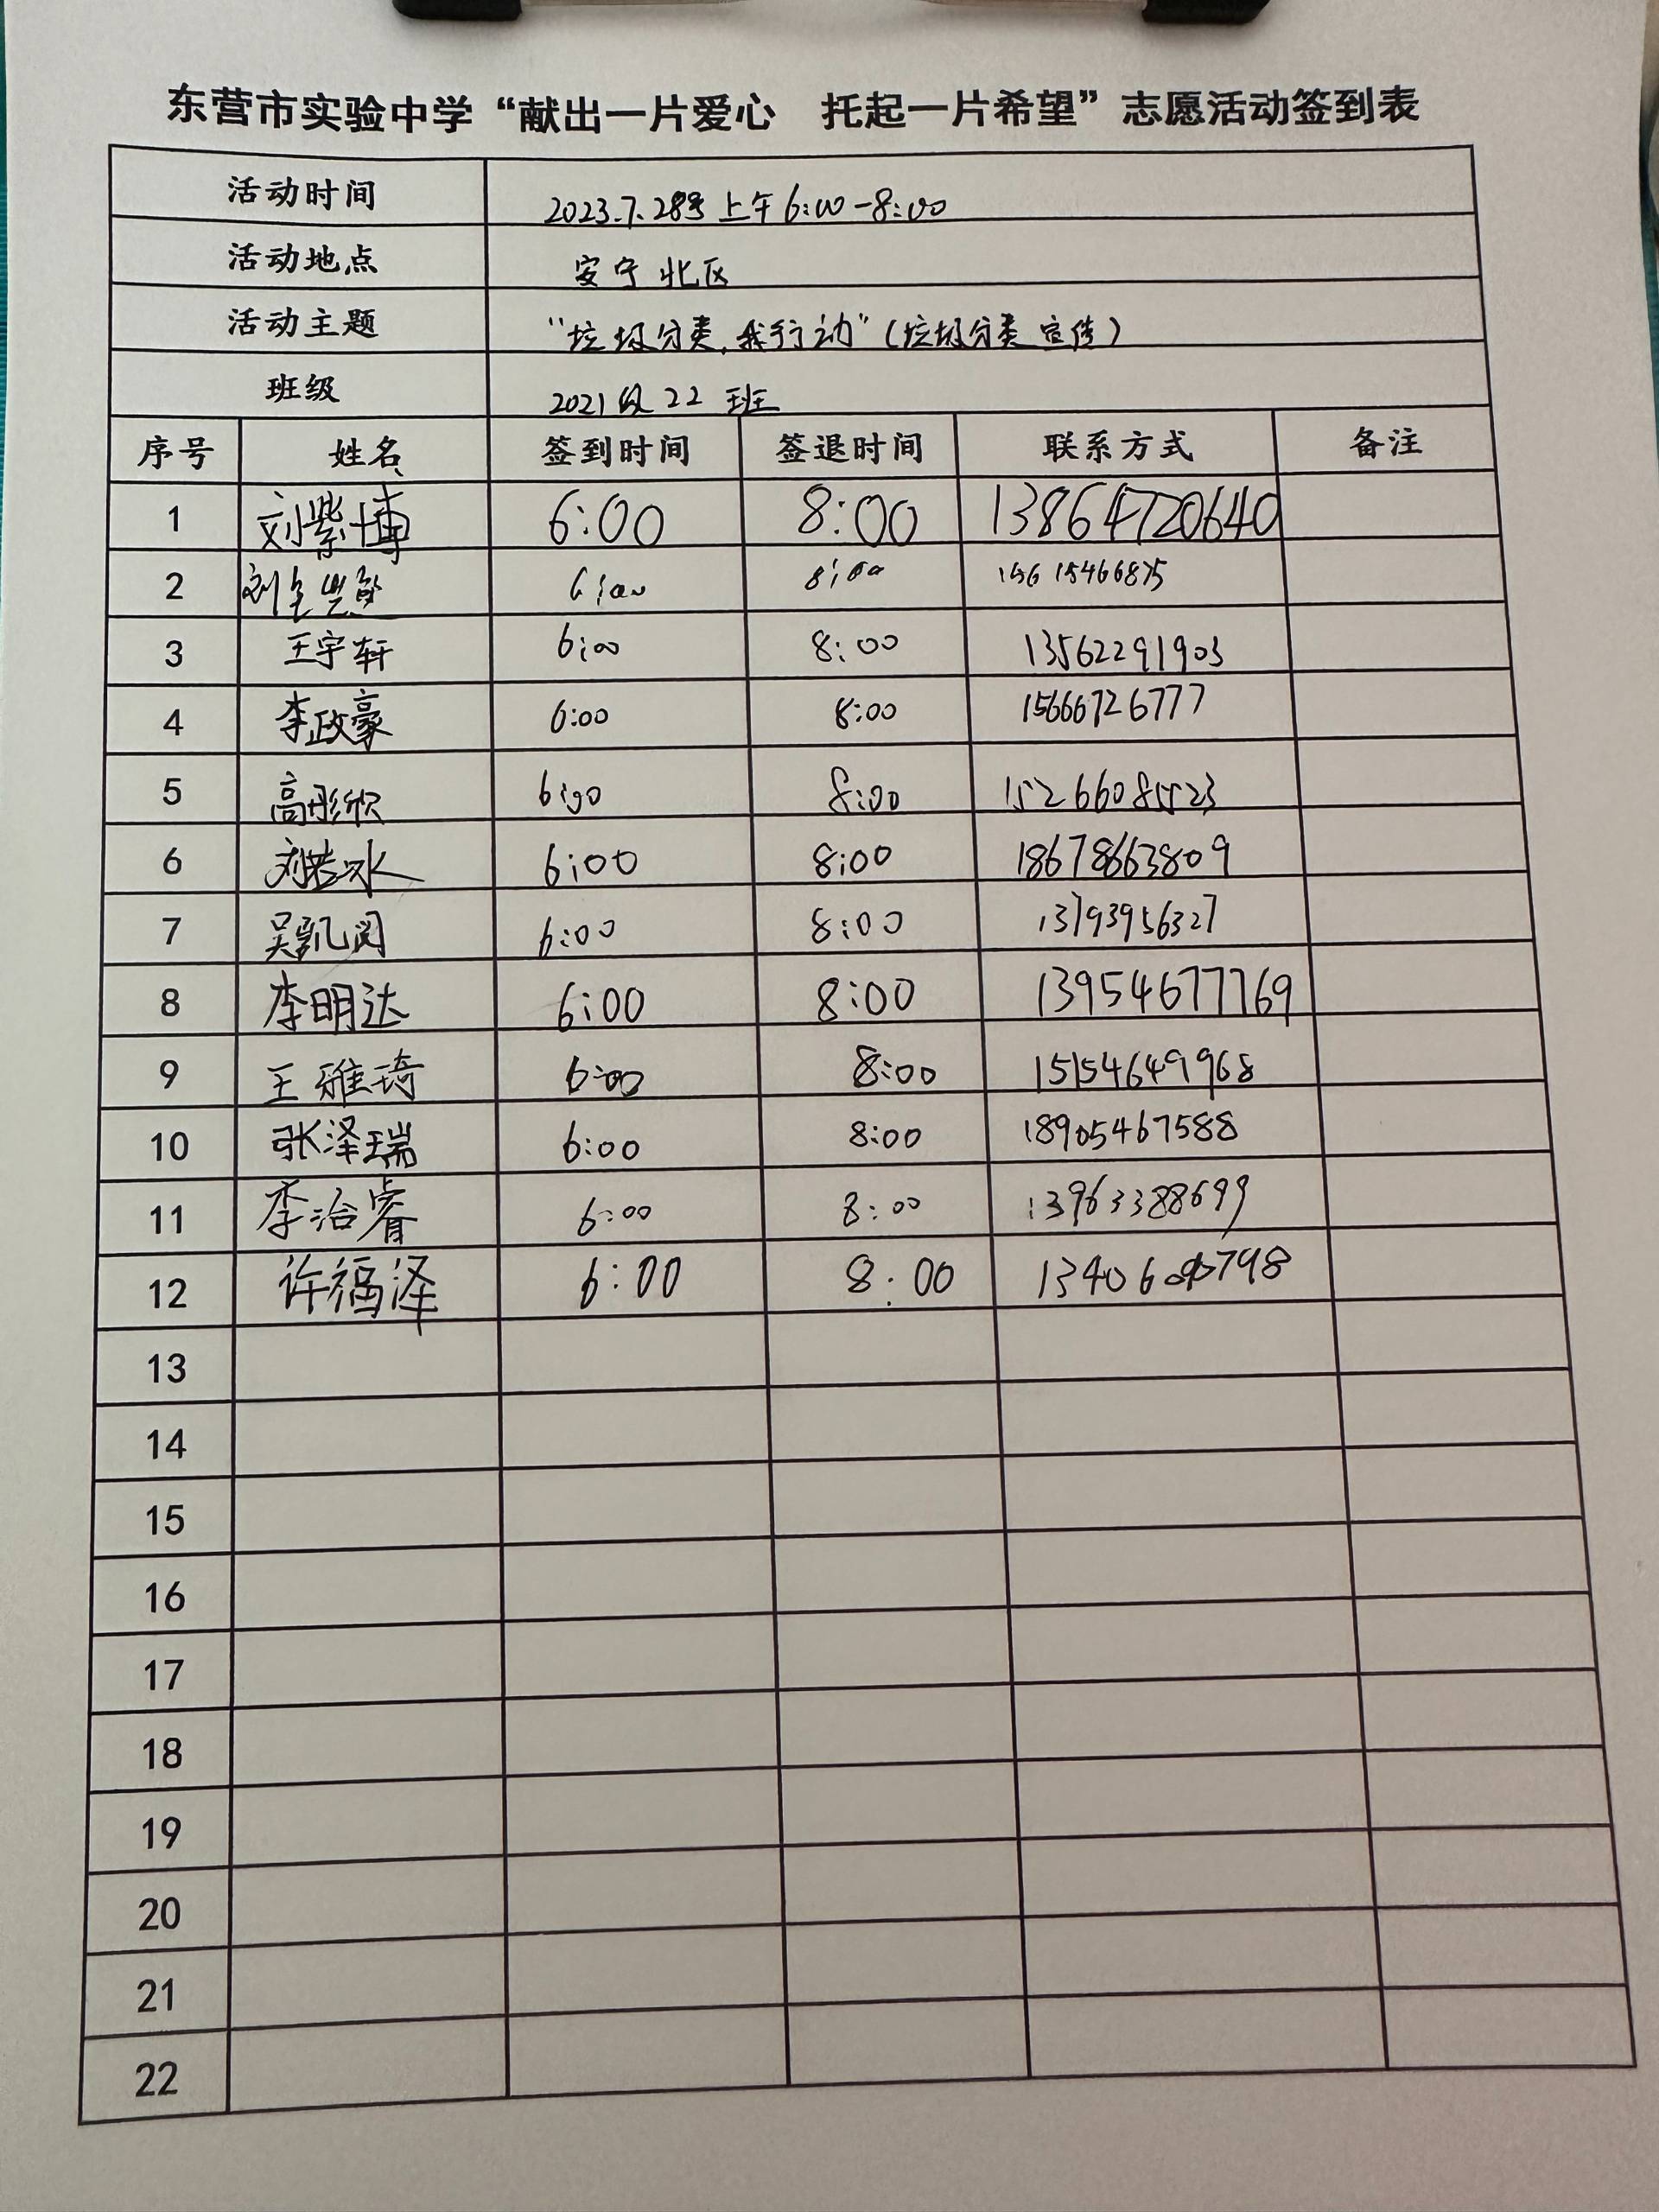 东营市实验中学“献出一片爱心 托起一片希望”志愿活动签到表
活动时间 2023.7.28号 上午 6:00-8:00
活动地点 安宁北区
活动主题 “垃圾分类,我行动”(垃圾分类宣传)
班级 2021级 22 班
序号 姓名 签到时间 签退时间 联系方式 备注
1 刘紫博 6:00 8:00 13864720640
2 6:00 8:00 15615466875
3 王宇轩 6:00 8:00 13562291903
4 李政豪 6:00 8:00 15666726777
5 高彤欣 6:00 8:00 15266085523
6 刘若冰 6:00 8:00 18678663809
7 吴凯闵 6:00 8:00 13793956327
8 李明达 6:00 8:00 13954677769
9 王雅琦 6:00 8:00 15154649968
10 张泽瑞 6:00 8:00 18905467588
11 李治睿 6:00 8:00 13963388699
12 许福泽 6:00 8:00
13
14
15
16
17
18
19
20
21
22